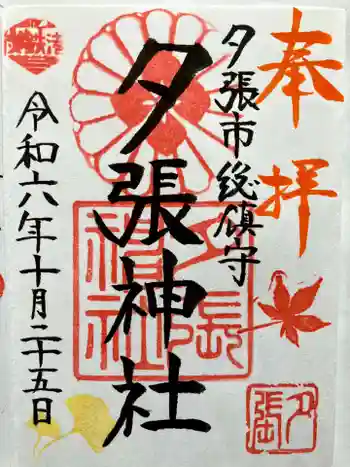 奉拝
夕張市総鎮守
夕張神社
令和六年十月二十五日
夕張神社
夕張